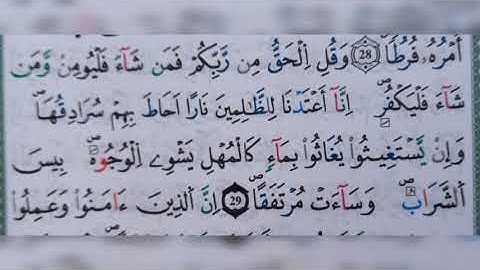 أَمْرُهُۥ فُرُطٗاۖ 28 وَقُلِ اِ۬لْحَقُّ مِن رَّبِّكُمْ فَمَن شَآءَ فَلْيُومِن وَّمَن
شَآءَ فَلْيَكْفُرِۖ اِنَّآ أَعْتَدْنَا لِلظَّٰلِمِينَ نَاراً اَحَاطَ بِهِمْ سُرَادِقُهَاۖ
وَإِنْ يَّسْتَغِيثُواْ يُغَاثُواْ بِمَآءٖ كَالْمُهْلِ يَشْوِے اِ۬لْوُجُوهَۖ بِيسَ
اَ۬لشَّرَابُۖ وَسَآءَتْ مُرْتَفَقاًۖ 29 اِنَّ اَ۬لذِينَ ءَامَنُواْ وَعَمِلُواْ